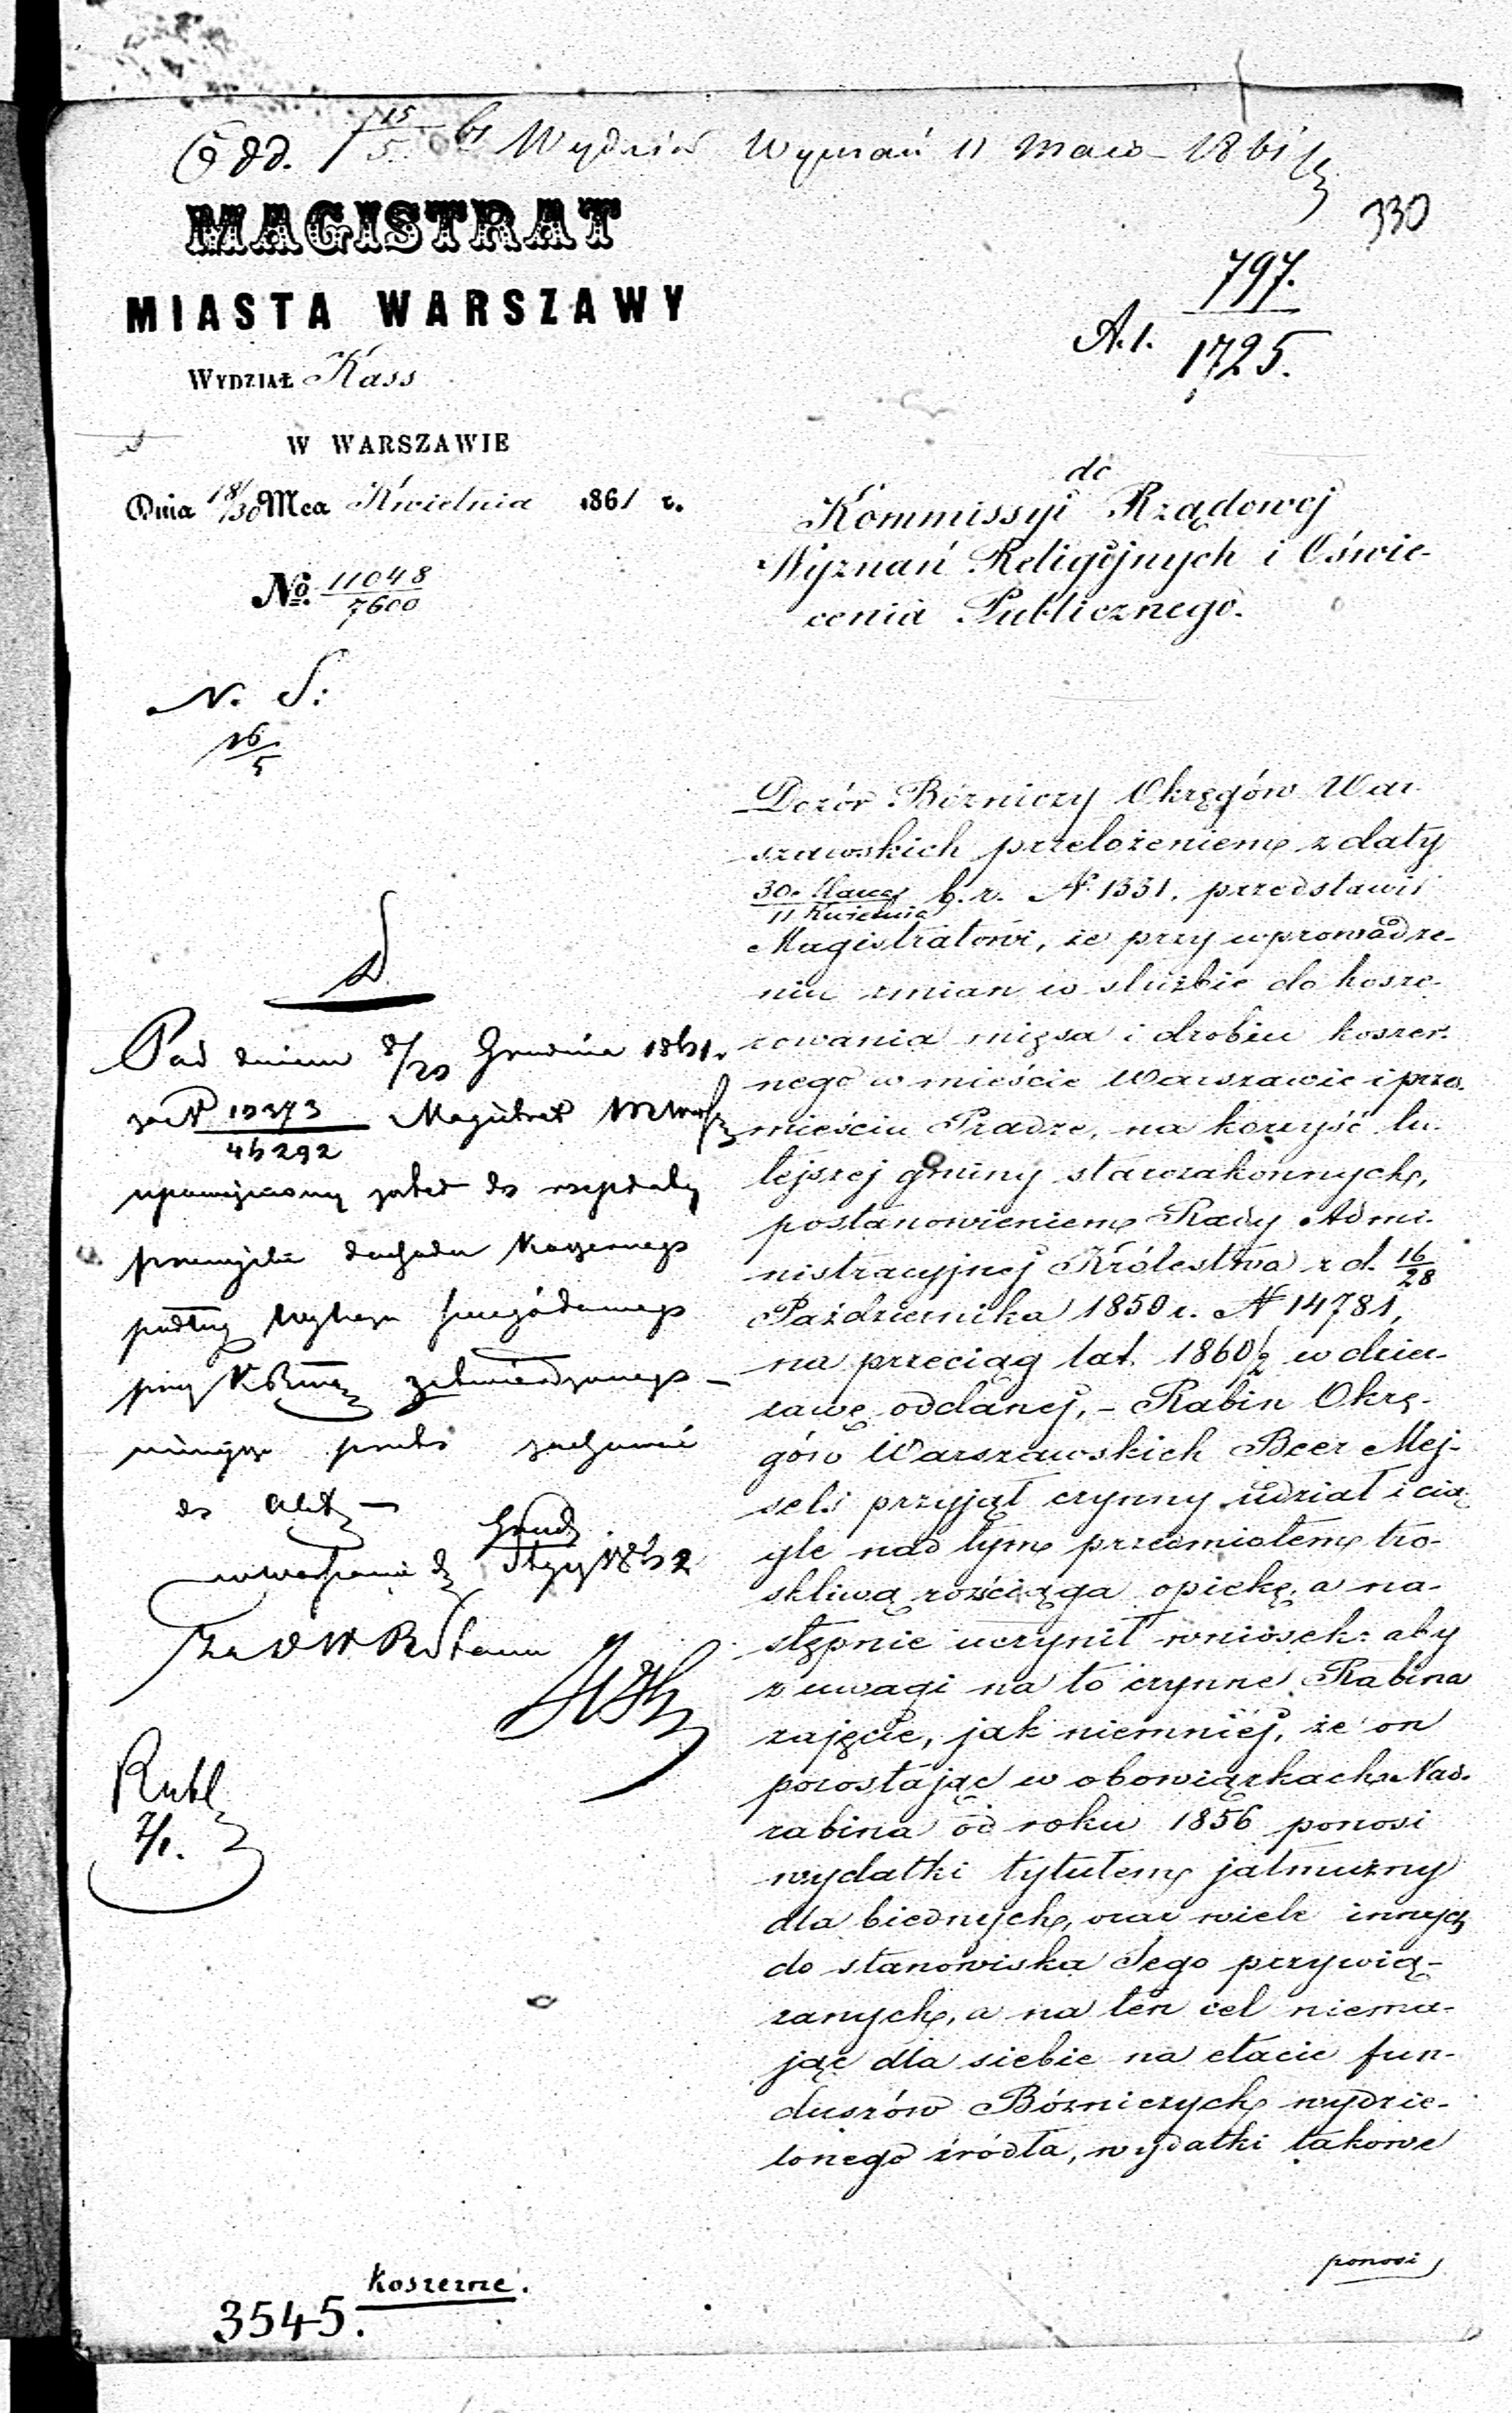 Wydział Wyznań 11 Maio 1861
330
MAGISTRAT
MIASTA WARSZAWY
WYDZIAŁ Kass
W WARSZAWIE
Dnia 18/30 Mca Kwietnia 1861 r.
No. 11048/7600
N. S:
16/5
797.
A.1. 1725.
do
Kommissyi Rządowej
Wyznań Religijnych i Oświe-
cenia Publicznego.
Dozór Bożniczy Okręgów War-
szawskich przełożeniem z daty
30. Marca/11 Kwietnia b.r. N. 1331. przedstawił
Magistratowi, że przy wprowadze-
niu zmian w służbie do kosze-
rowania mięsa i drobiu koszer-
nego w mieście Warszawie i prze-
mieściu Pradze, na korzyść tu-
tejszej gminy starozakonnych,
postanowieniem Rady Admi-
nistracyjnej Królestwa z d. 16/28
Października 1850 r. N 14781,
na przeciąg lat 1860/2 w dzier-
zawę oddanej, - Rabin Okrę-
gów Warszawskich Beer Mej-
sels przyjął czynny udział i cią-
gle nad tym przedmiotem tro-
skliwą rozściąga opiekę, a na-
stępnie uczynił wniosek: aby
z uwagi na to czynne Rabina
zajęcie, jak niemniej, że on
pozostając w obowiązkach Nad-
rabina od roku 1856 ponosi
wydatki tytułem jałmużny
dla biednych, oraz wiele innych
do stanowiska Jego przywią-
zanych, a na ten cel niema-
jąc dla siebie na etacie fun-
duszów Bóżniczych wydzie-
lonego źródła, wydatki takowe
ponosi
Pod dniem 8/20 Grudnia 1861.
za N 15373/46292 Magistrat
do
podług
przy zatwierdzonego
niniejsze zachować
do Akt
w Warszawie d. 1862
Rubl.
koszerne.
3545.